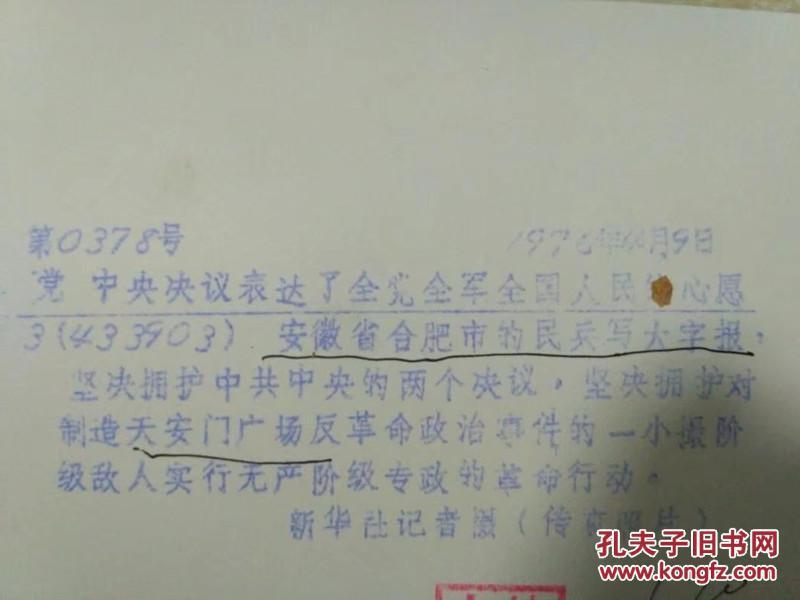 第0378号 1976年4月9日
党中央决议表达了全党全军全国人民的心愿
3(433903) 安徽省合肥市的民兵写大字报，
坚决拥护中共中央的两个决议，坚决拥护对
制造天安门广场反革命政治事件的一小撮阶
级敌人实行无产阶级专政的革命行动。
新华社记者摄(传真照片)
孔夫子旧书网
www.kongfz.com